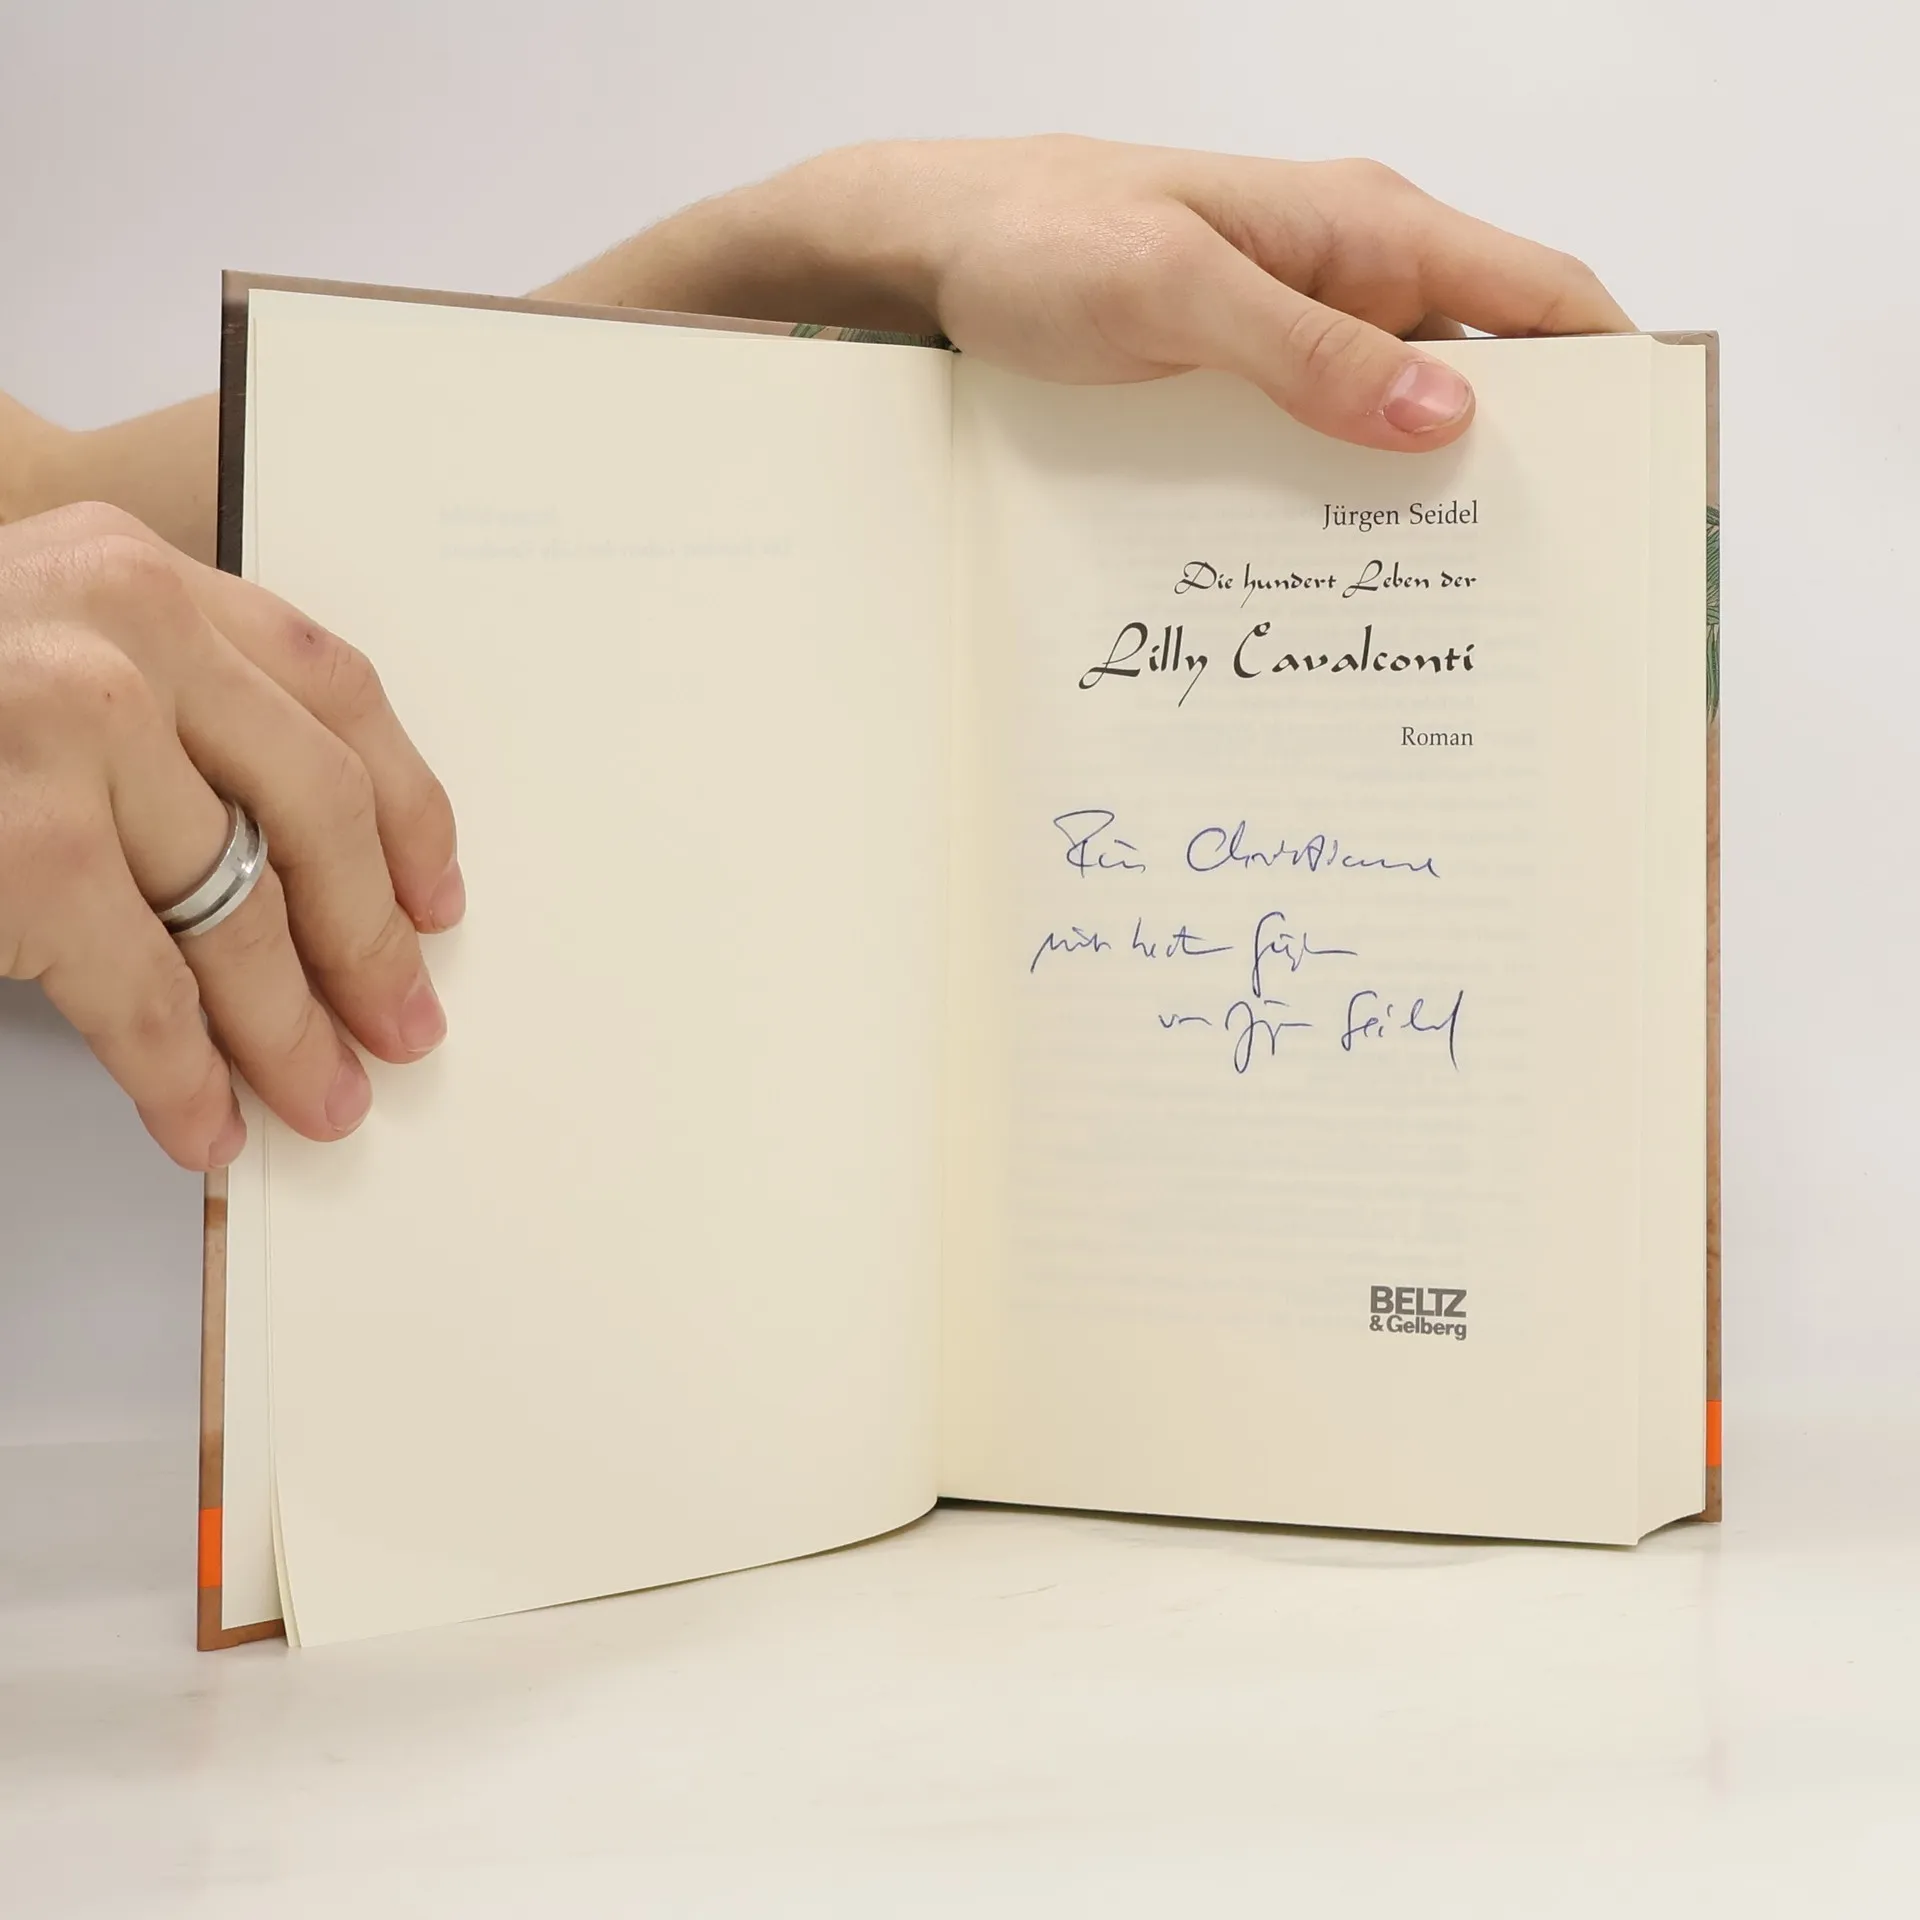 Jürgen Seidel
Die hundert Leben der
Lilly Cavalconti
Roman
Für Christiane
mit besten Grüßen
von Jürgen Seidel
BELTZ
& Gelberg